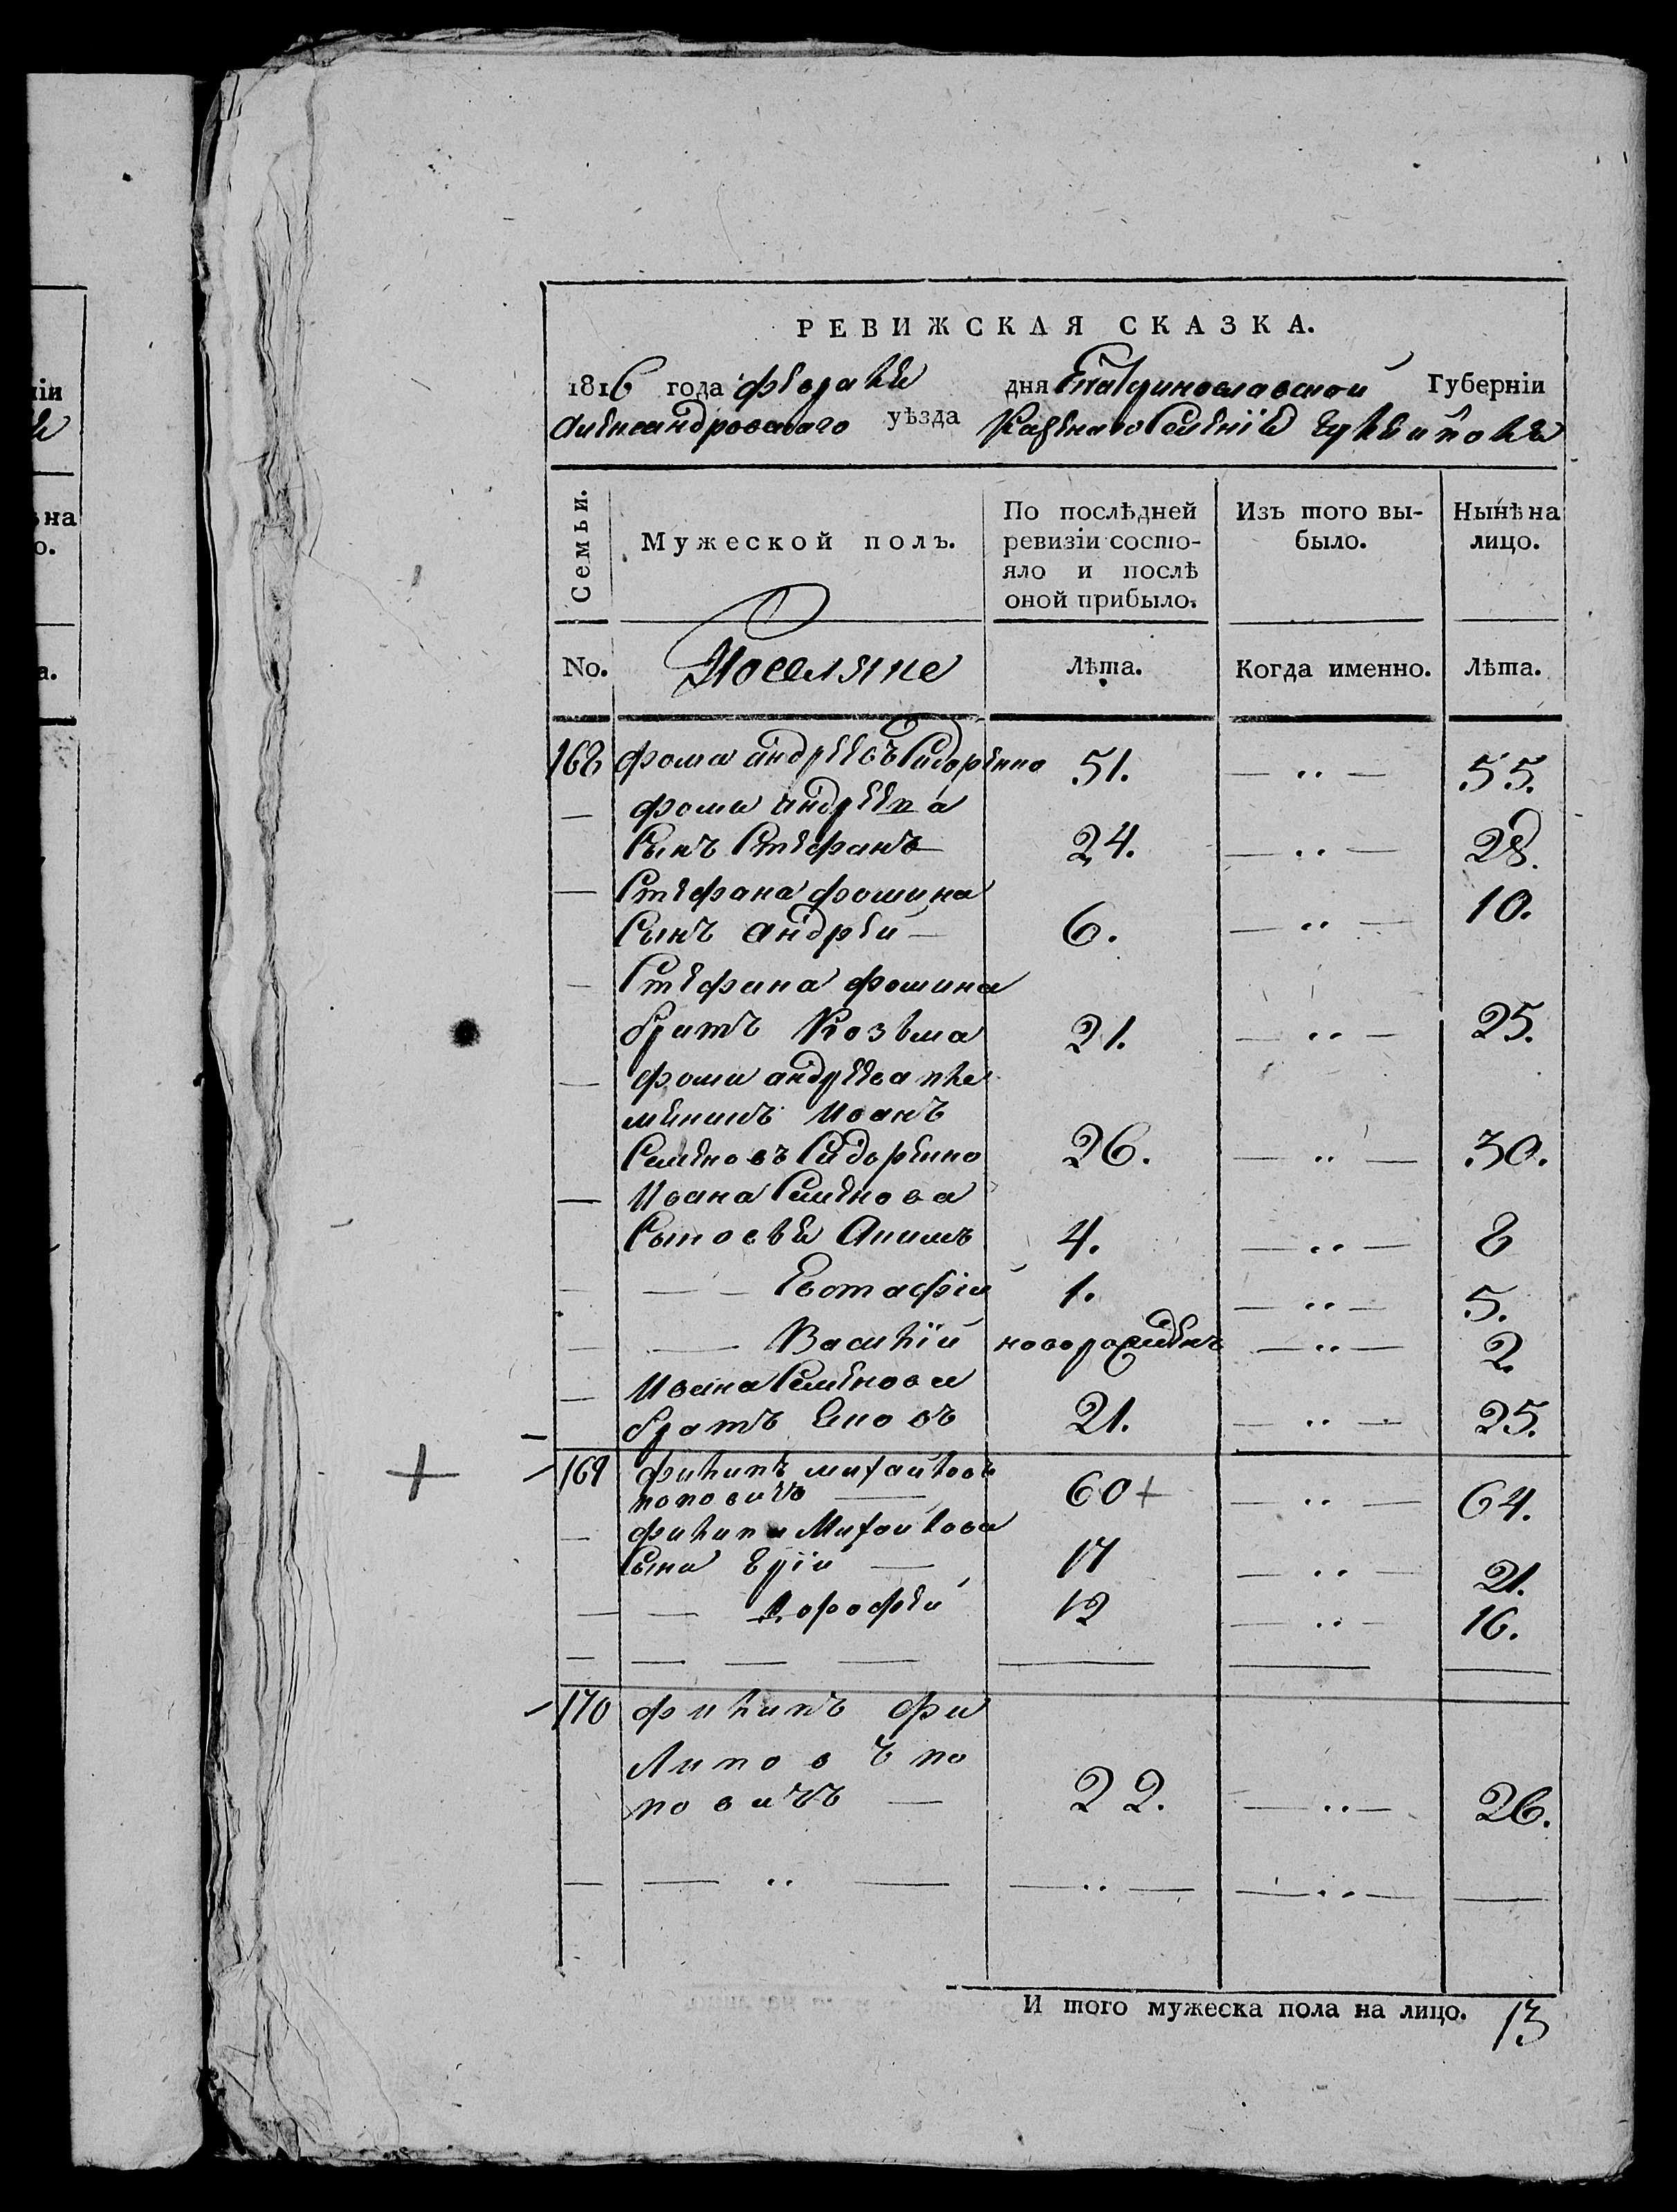 ніи
ѣна
о.
а.
РЕВИЖСКАЯ СКАЗКА.
1816 года февраля дня Екатеринославской Губерніи
Александровскаго уѣзда Казеннаго Селенія
Семьи.
Мужеской полъ.
По послѣдней ревизіи состо-
яло и послѣ
оной прибыло.
Изъ того вы-
было.
Нынѣ на
лицо.
No.
Поселяне
Лѣта.
Когда именно.
Лѣта.
168 Фома Андреевъ Сидоренко 51. — .. — 55.
— Фомы Андреева
Сынъ Стефанъ 24. — .. — 28.
— Стефана Фомина
Сынъ Андрей — 6. — .. — 10.
— Стефана Фомина
братъ Козьма 21. — .. — 25.
— Фомы Андреева пле
мяникъ Иванъ
Семеновъ Сидоренко 26. — .. — 30.
— Ивана Семенова
Сыновья Акимъ 4. — .. — 8
— — — Евстафій 1. — .. — 5.
— — Василій новорожденъ — .. — 2.
— Ивана Семенова
братъ 21. — .. — 25.
169 Филипъ Михайловъ
поповичъ — 60+ — .. — 64.
— Филипа Михайлова
Сына — 17 — .. — 21.
— — Дорофей 12 — .. — 16.
— — — — — — —
170 Филипъ Фи
липовъ по
повичъ — 22. — .. — 26.
— — .. — — .. — — .. — —
И того мужеска пола на лицо. 13